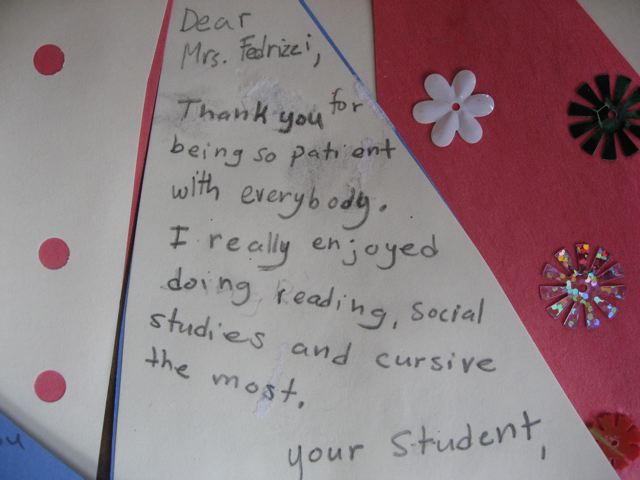 Dear
Mrs. Fedrizzi,
Thank you for
being so patient
with everybody.
I really enjoyed
doing reading, social
studies and cursive
the most.
your student,